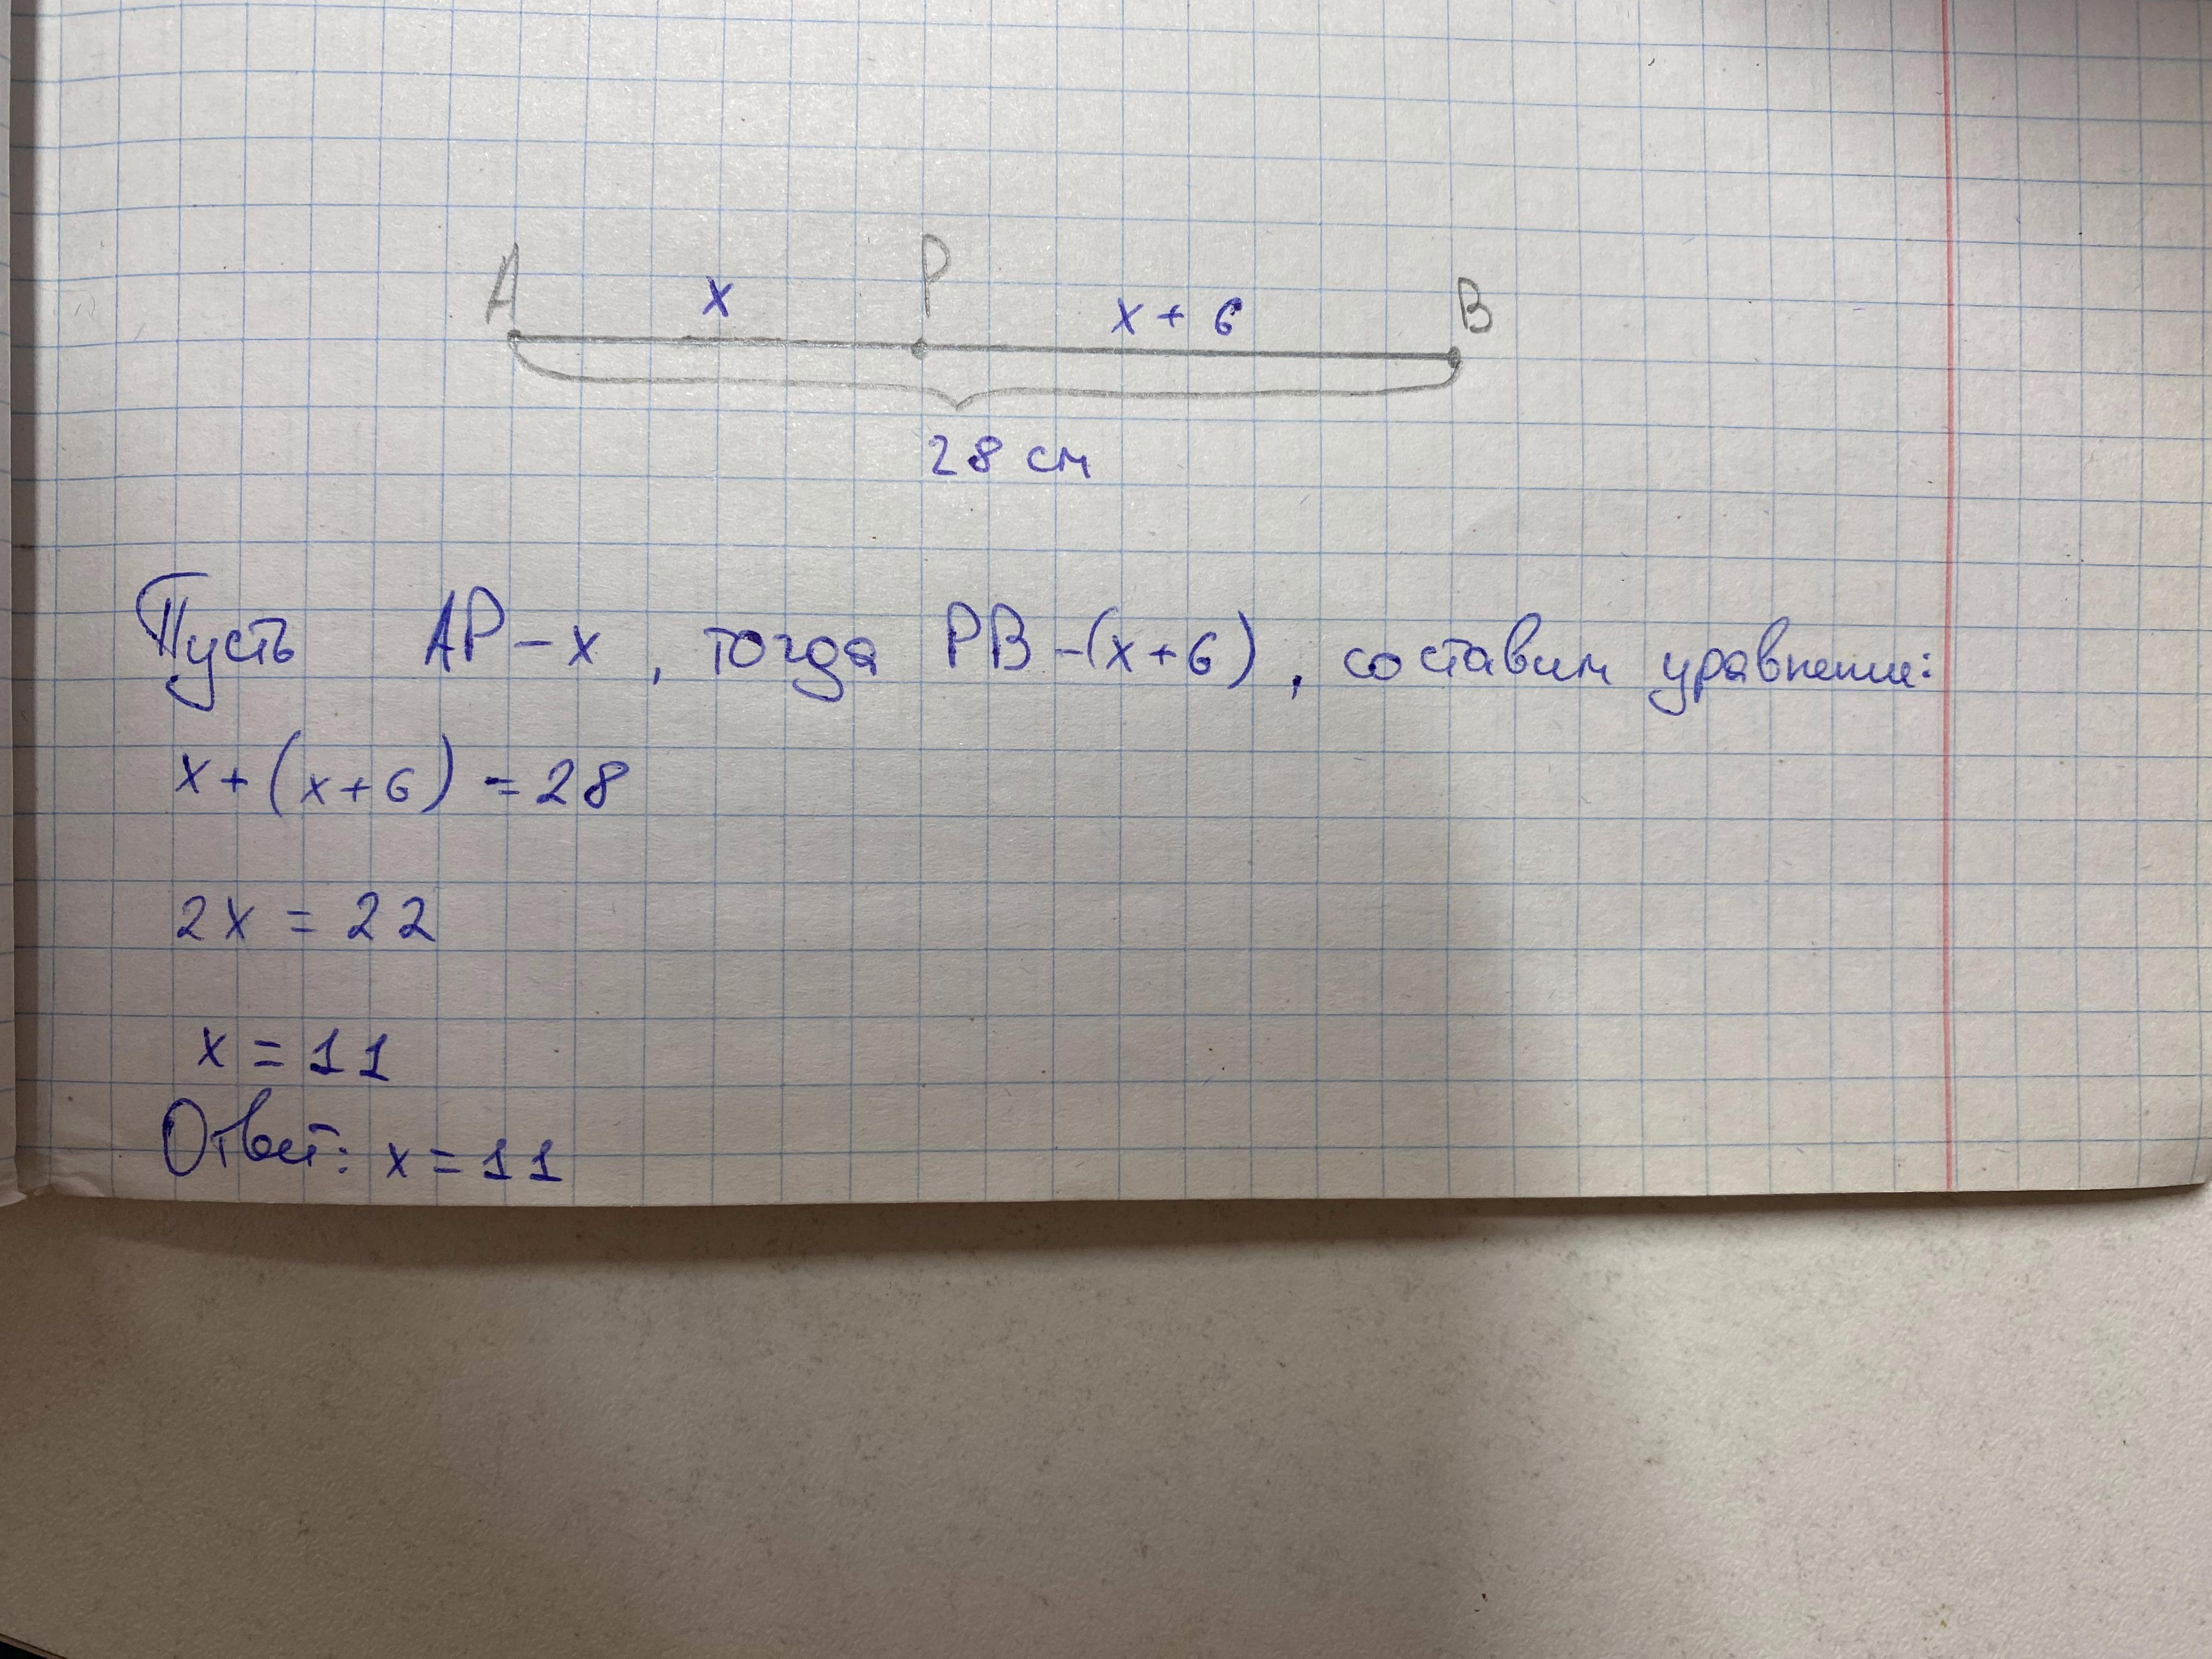 A x P x + 6 B
28 см
Пусть AP – x , тогда PB – (x+6) , составим уравнение:
x + (x+6) = 28
2x = 22
x = 11
Ответ: x = 11